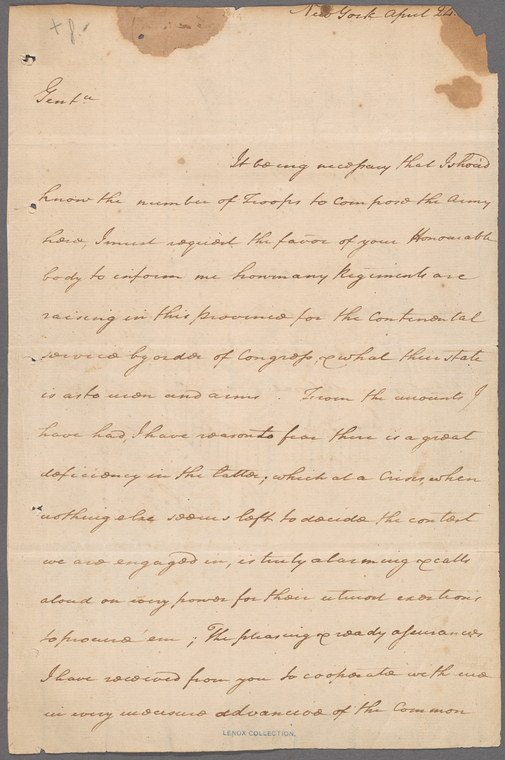 New York April 24
Gentn
It being necessary that I shou'd
know the number of Troops to compose the Army
here, I must request the favor of your Honourable
body to inform me how many Regiments are
raising in this Province for the Continental
service by order of Congress, & what their state
is as to men and arms. From the accounts I
have had, I have reason to fear there is a great
deficiency in the latter; which at a Crisis, when
nothing else seems left to decide the contest
we are engaged in, is truly alarming & calls
aloud on every power for their utmost exertions
to procure 'em; The pleasing & ready assurances
I have received from you to cooperate with me
in every measure advancive of the Common
LENOX COLLECTION.